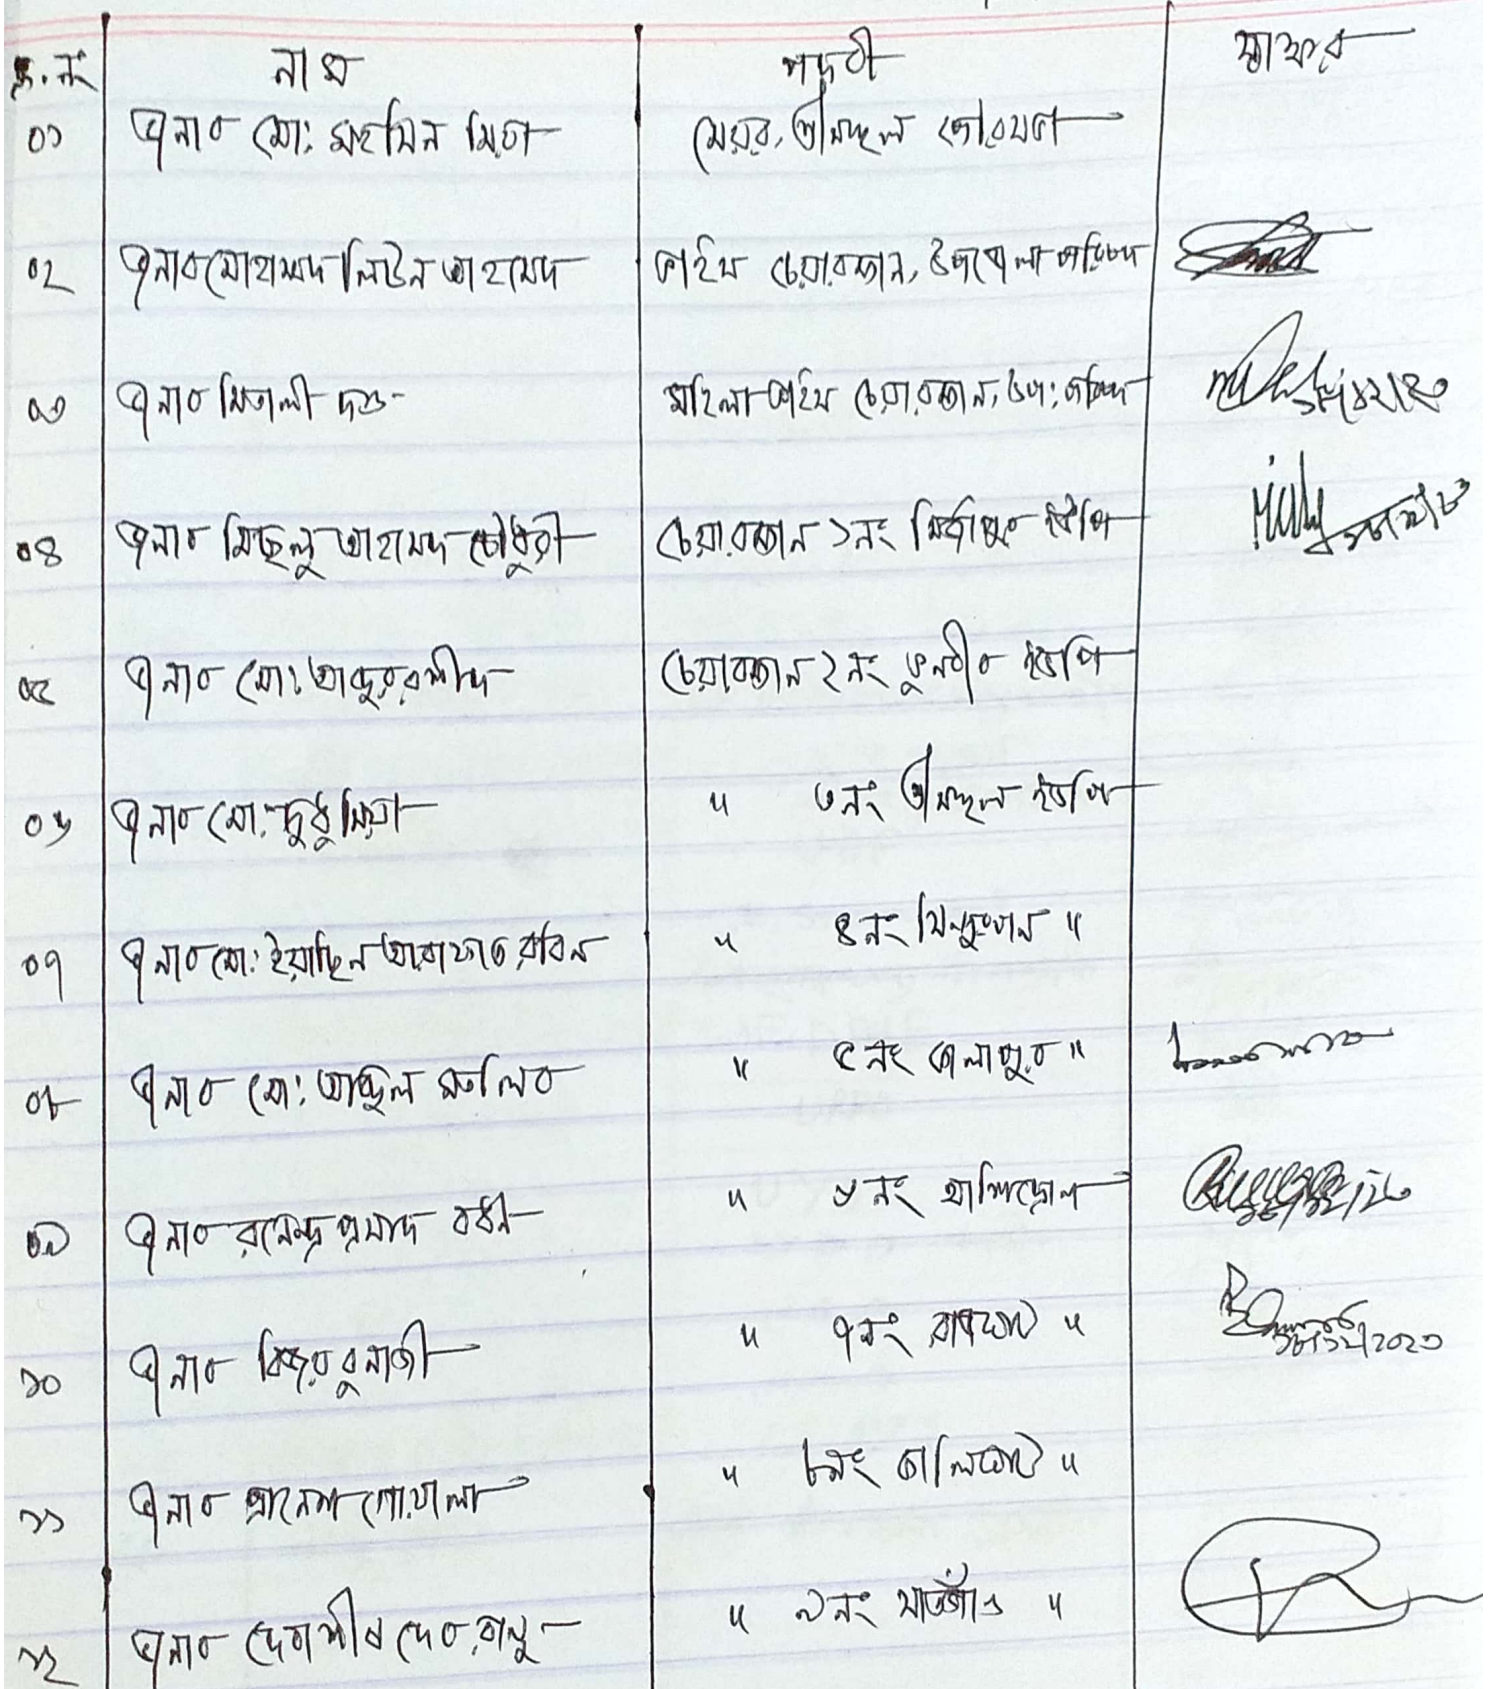 ক্র. নং নাম পদবী স্বাক্ষর
০১ জনাব মো: মহসিন মিয়া মেয়র, শ্রীমঙ্গল পৌরসভা
০২ জনাব মোহাম্মদ লিটন আহমেদ ভাইস চেয়ারম্যান, উপজেলা পরিষদ
০৩ জনাব মিতালী দত্ত মহিলা ভাইস চেয়ারম্যান, উপ: পরিষদ
০৪ জনাব মিছলু আহমদ চৌধুরী চেয়ারম্যান ১নং মির্জাপুর ইউপি
০৫ জনাব মো: আব্দুর রশীদ চেয়ারম্যান ২নং ভুনবীর ইউপি
০৬ জনাব মো: দুধু মিয়া " ৩নং শ্রীমঙ্গল ইউপি
০৭ জনাব মো: ইয়াছিন আরাফাত রবিন " ৪নং সিন্দুরখান "
০৮ জনাব মো: আব্দুল মতলিব " ৫নং কালাপুর "
০৯ জনাব রনেন্দ্র প্রসাদ বর্ধন " ৬নং আশিদ্রোন
১০ জনাব বিজয় বুনার্জী " ৭নং রাজঘাট " ২০২৩
১১ জনাব প্রানেশ গোয়ালা " ৮নং কালিঘাট "
১২ জনাব দেবাশীষ দেব রাখু " ৯নং সাতগাঁও "